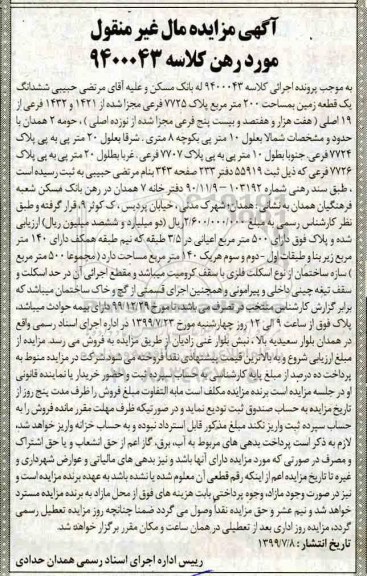 آگهی مزایده مال غیر منقول
مورد رهن کلاسه ۹۴۰۰۰۴۳
به موجب پرونده اجرائی کلاسه ۹۴۰۰۰۴۳ له بانک مسکن و علیه آقای مرتضی حبیبی ششدانگ
یک قطعه زمین بمساحت ۲۰۰ متر مربع پلاک ۷۷۲۵ فرعی مجزا شده از ۱۴۲۱ و ۱۴۳۲ فرعی از
۱۹ اصلی ( هفت هزار و هفتصد و بیست پنج فرعی مجزا شده از نوزده اصلی ) ، حومه ۲ همدان با
حدود و مشخصات شمالا بطول ۱۰ متر پی بکوچه ۸ متری . شرقا بطول ۲۰ متر پی به پی پلاک
۷۷۲۴ فرعی. جنوبا بطول ۱۰ متر پی به پی پلاک ۷۷۰۷ فرعی. غربا بطلول ۲۰ متر پی به پی پلاک
۷۷۲۶ فرعی که ذیل ثبت ۵۵۹۱۹ دفتر ۲۳۳ صفحه ۳۴۳ بنام مرتضی حبیبی به ثبت رسیده است
، طبق سند رهنی شماره ۱۰۳۱۹۲ – ۹۰/۱۱/۹ دفتر خانه ۷ همدان در رهن بانک مسکن شعبه
فرهنگیان همدان به نشانی: همدان شهرک مدنی ، خیابان پردیس ، ک کوثر ۹، قرار گرفته و طبق
نظر کارشناس رسمی به مبلغ ۲/۶۰۰/۰۰۰/۰۰۰ ریال (دو میلیارد و ششصد میلیون ریال) ارزیابی
شده و پلاک فوق دارای ۵۰۰ متر مربع اعیانی در ۳/۵ طبقه که نیم طبقه همکف دارای ۱۴۰ متر
مربع زیر بنا و طبقات اول -دوم و سوم هریک ۱۴۰ متر مربع مساحت دارد (مجموعا ۵۰۰ متر مربع
) سازه ساختمان از نوع اسکلت فلزی با سقف کرومیت میباشد و مقطع اجرائی آن در حد اسکلت و
سقف تیغه چینی داخلی و پیرامونی و همچنین اجرای قسمتی از گچ و خاک ساختمان میباشد که
برابر گزارش کارشناس منتخب در تصرف می باشد. تا مورخ ۹۹/۱۲/۲۹ دارای بیمه حوادث میباشد.
پلاک فوق از ساعت ۹ الی ۱۲ روز چهارشنبه مورخ ۱۳۹۹/۷/۲۳ در اداره اجرای اسناد رسمی واقع
در همدان بلوار سعیدیه بالا ، نبش بلوار غنی زادیان از طریق مزایده به فروش می رسد. مزایده از
مبلغ ارزیابی شروع و به بالاترین قیمت پیشنهادی نقدا فروخته می شود. شرکت در مزایده منوط به
پرداخت ده درصد از مبلغ پایه کارشناسی به حساب سپرده ثبت وحضور خریدار یا نماینده قانونی
او در جلسه مزایده است برنده مزایده مکلف است مابه التفاوت مبلغ فروش را ظرف مدت پنج روز از
تاریخ مزایده به حساب صندوق ثبت تودیع نماید و در صورتیکه ظرف مهلت مقرر مانده فروش را به
حساب سپرده ثبت واریز نکند مبلغ مذکور قابل استرداد نبوده و به حساب خزانه واریز خواهد شد.
لازم به ذکر است پرداخت بدهی های مربوط به آب، برق، گاز اعم از حق انشعاب و یا حق اشتراک
و مصرف در صورتی که مورد مزایده دارای آنها باشد و نیز بدهی های مالیاتی و عوارض شهرداری و
غیره تا تاریخ مزایده اعم از اینکه رقم قطعی آن معلوم شده یا نشده باشد به عهده برنده مزایده است و
نیز در صورت وجود مازاد، وجوه پرداختی بابت هزینه های فوق از محل مازاد به برنده مزایده مسترد
خواهد شد و نیم عشر و حق مزایده نقدا وصول می گردد ضمنا چنانچه روز مزایده تعطیل رسمی
گردد، مزایده روز اداری بعد از تعطیلی در همان ساعت و مکان مقرر برگزار خواهد شد.
تاریخ انتشار: ۱۳۹۹/۷/۸
رییس اداره اجرای اسناد رسمی همدان حدادی